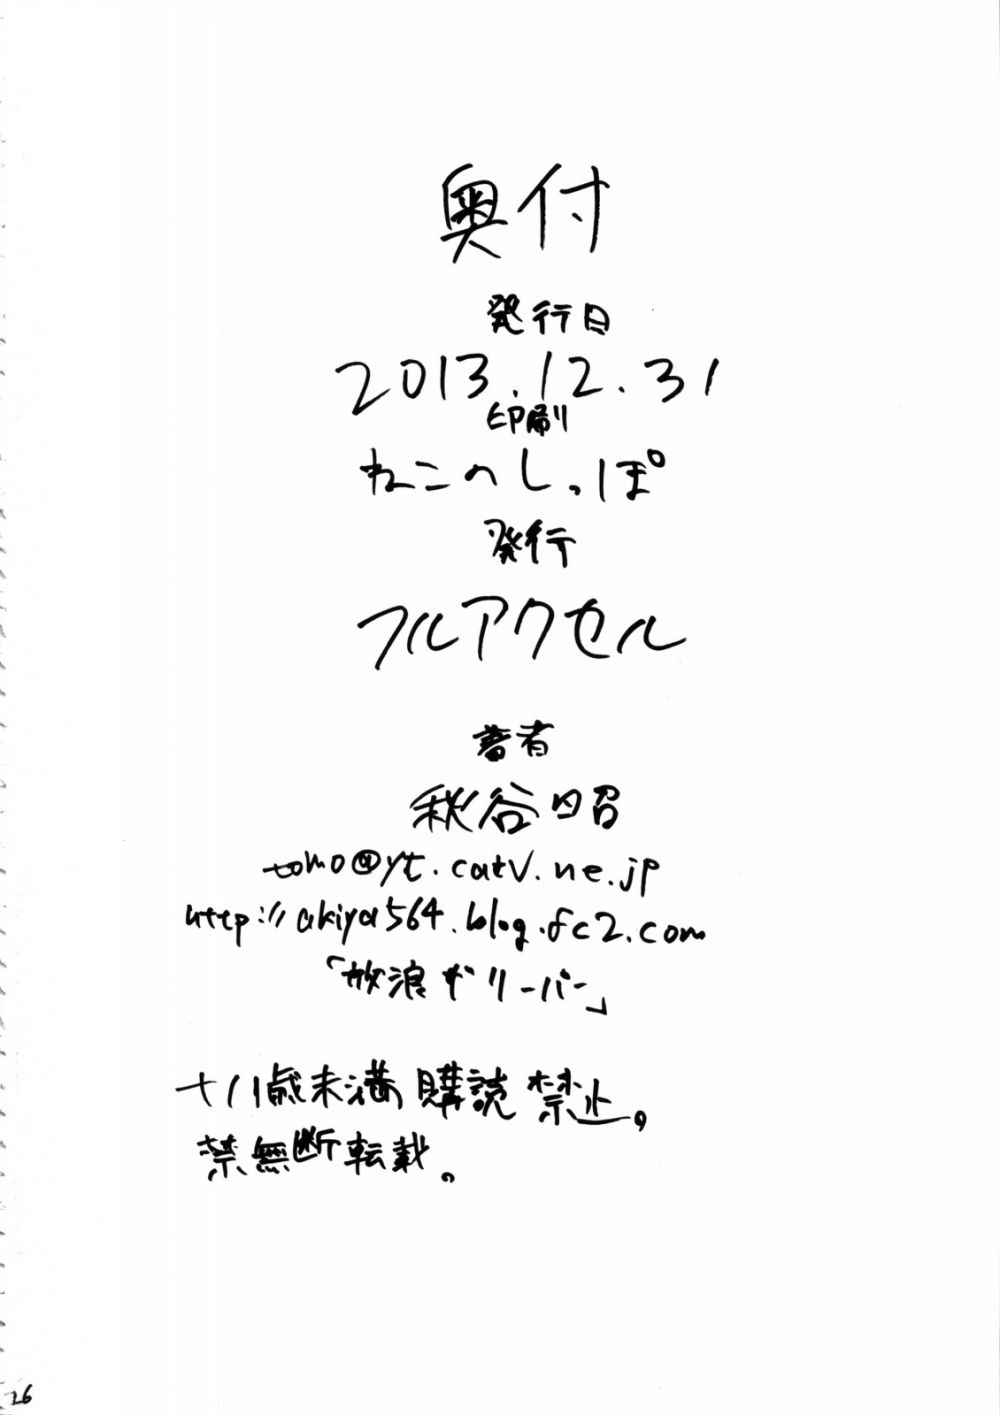 奥付
発行日
2013.12.31
印刷
ねこのしっぽ
発行
フルアクセル
著者
秋谷昭
tomo@yt.catv.ne.jp
http://akiya564.blog.fc2.com
「放浪ザリーバー」
十八歳未満購読禁止。
禁無断転載。
26